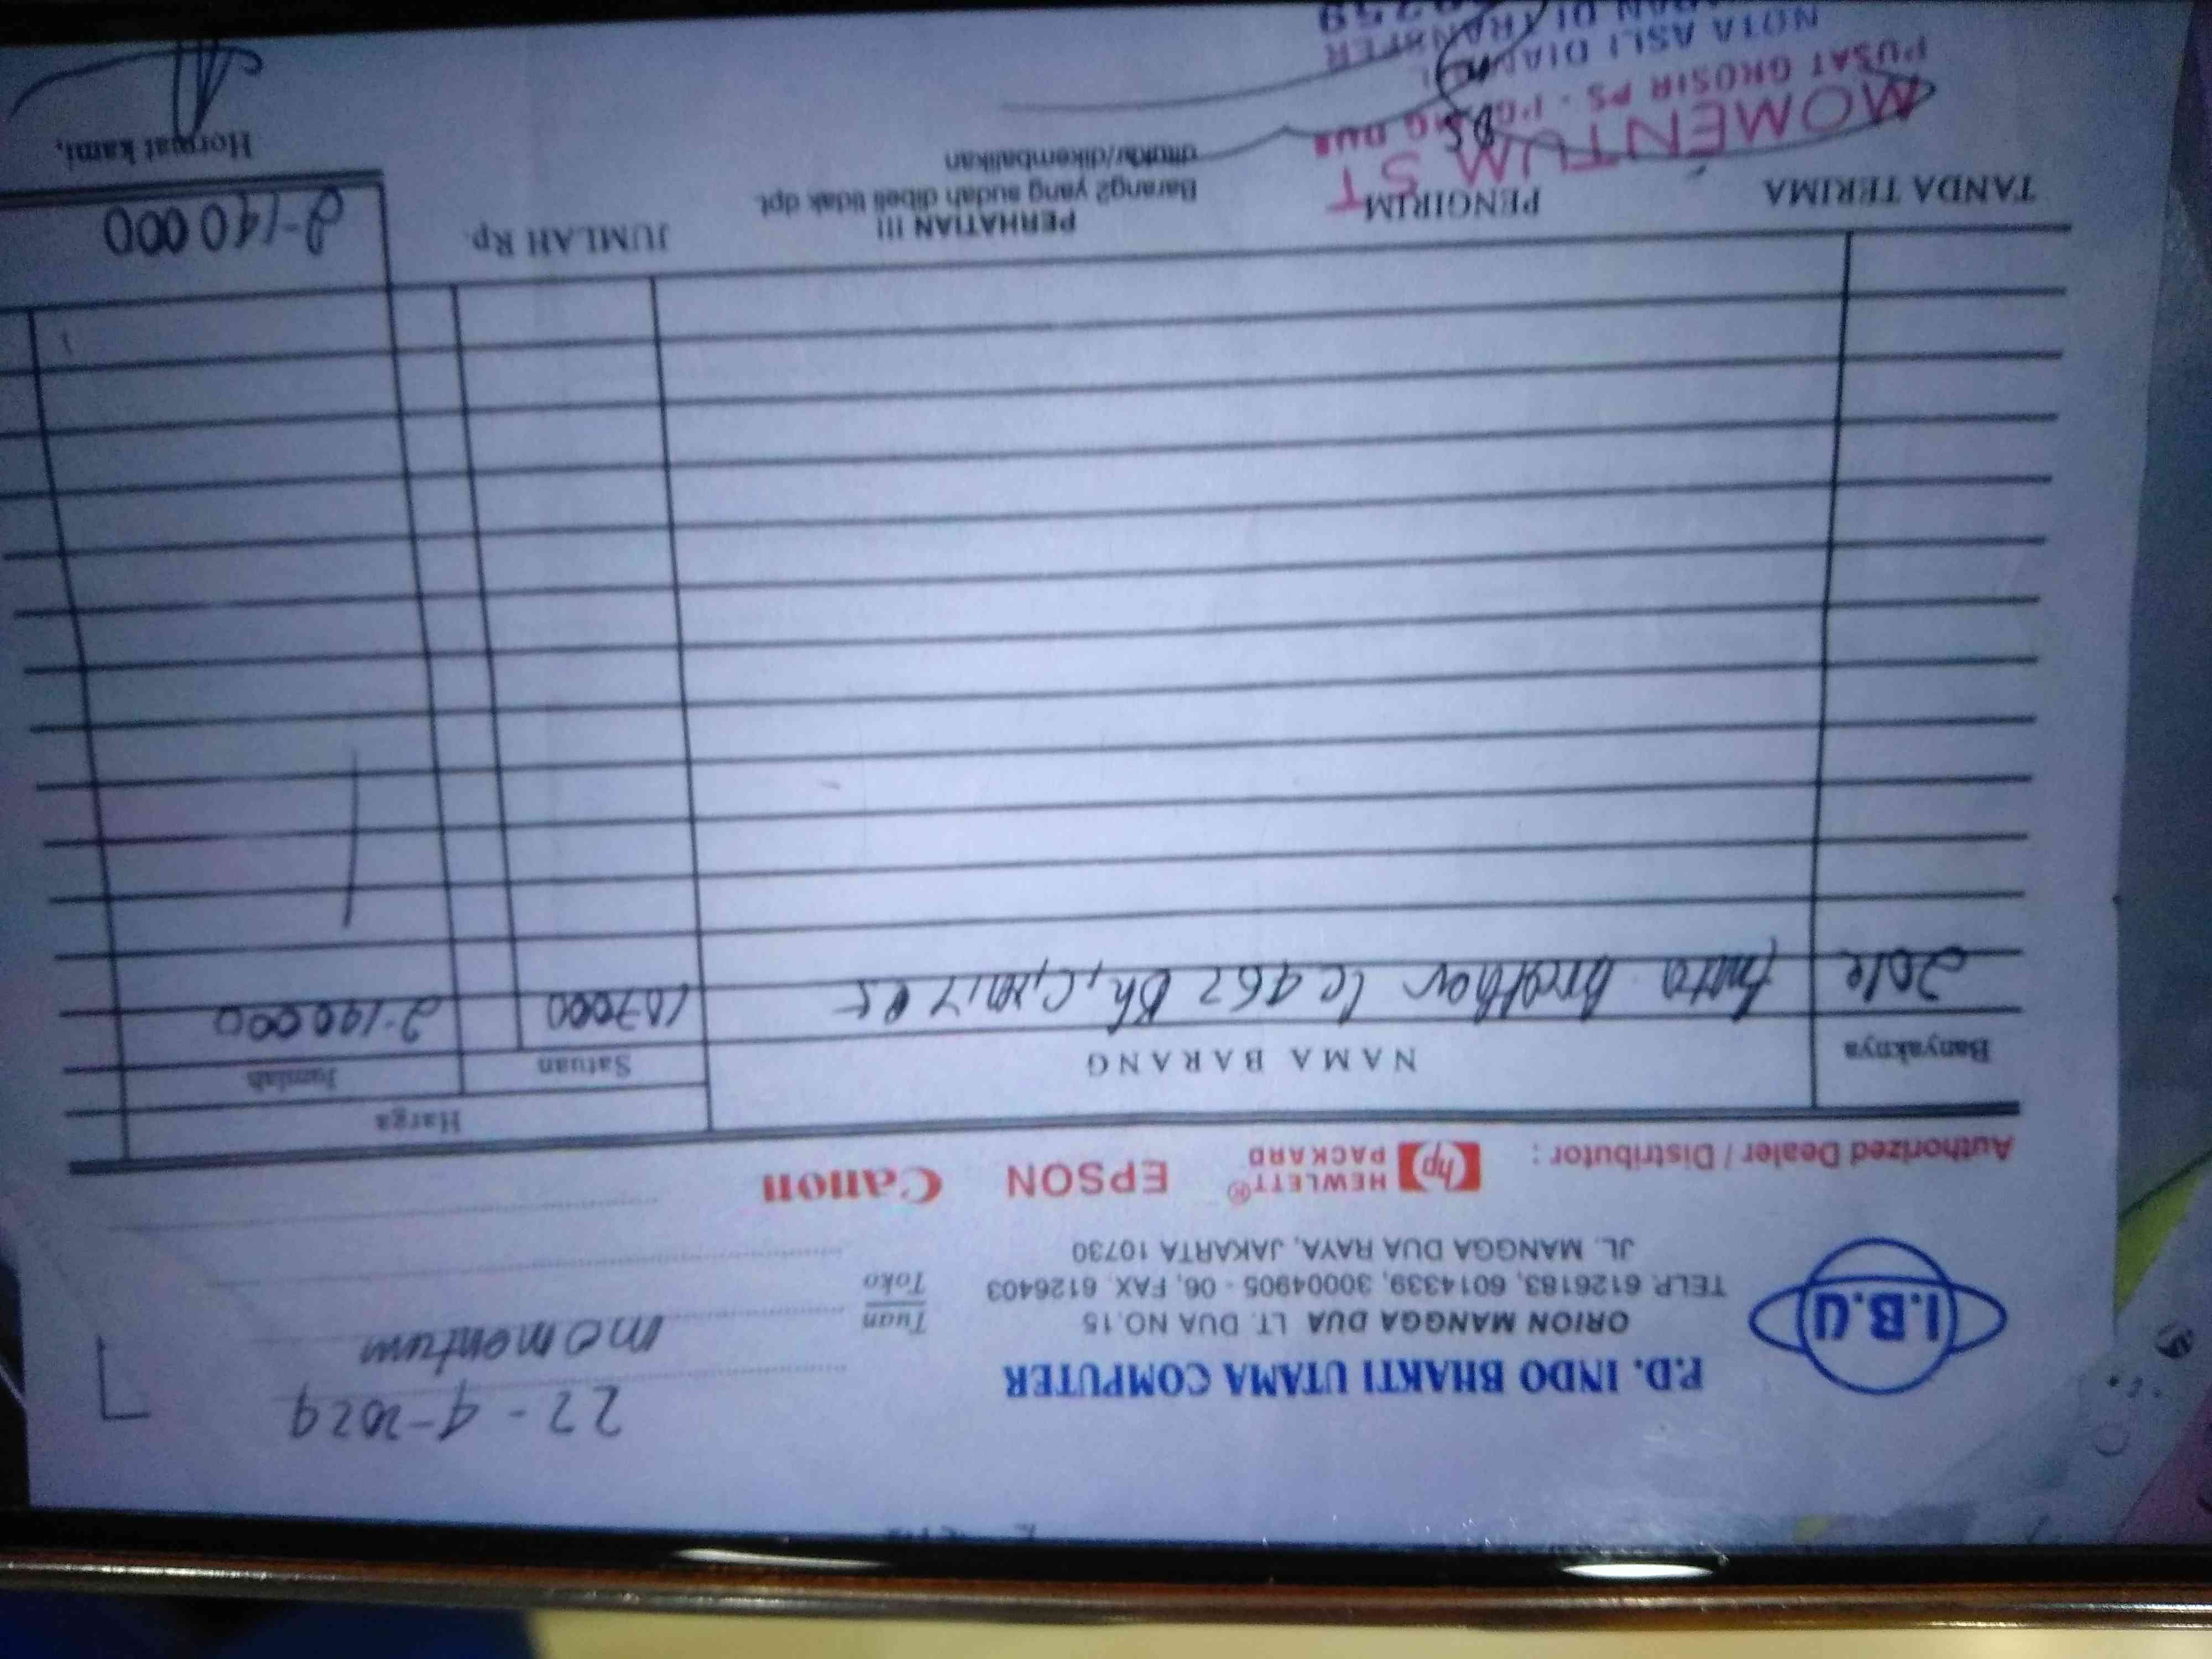 22-4-2024
P.D. INDO BHAKTI UTAMA COMPUTER
ORION MANGGA DUA LT. DUA NO.15
TELP. 6126183, 6014339, 30004905 - 06, FAX. 6126403
JL. MANGGA DUA RAYA, JAKARTA 10730
I.B.U
Tuan
Toko
momentum
Authorized Dealer / Distributor :
hp HEWLETT® PACKARD
EPSON
Canon
Banyaknya
NAMA BARANG
Harga
Satuan
Jumlah
brother lc 462 107000 2.140.000
TANDA TERIMA
PENGIRIM
PERHATIAN !!!
Barang2 yang sudah dibeli tidak dpt.
ditukar/dikembalikan
JUMLAH Rp.
2-140 000
Hormat kami,
MOMENTUM ST
PUSAT GROSIR PS - DUA
NOTA ASLI
DI TRANSFER